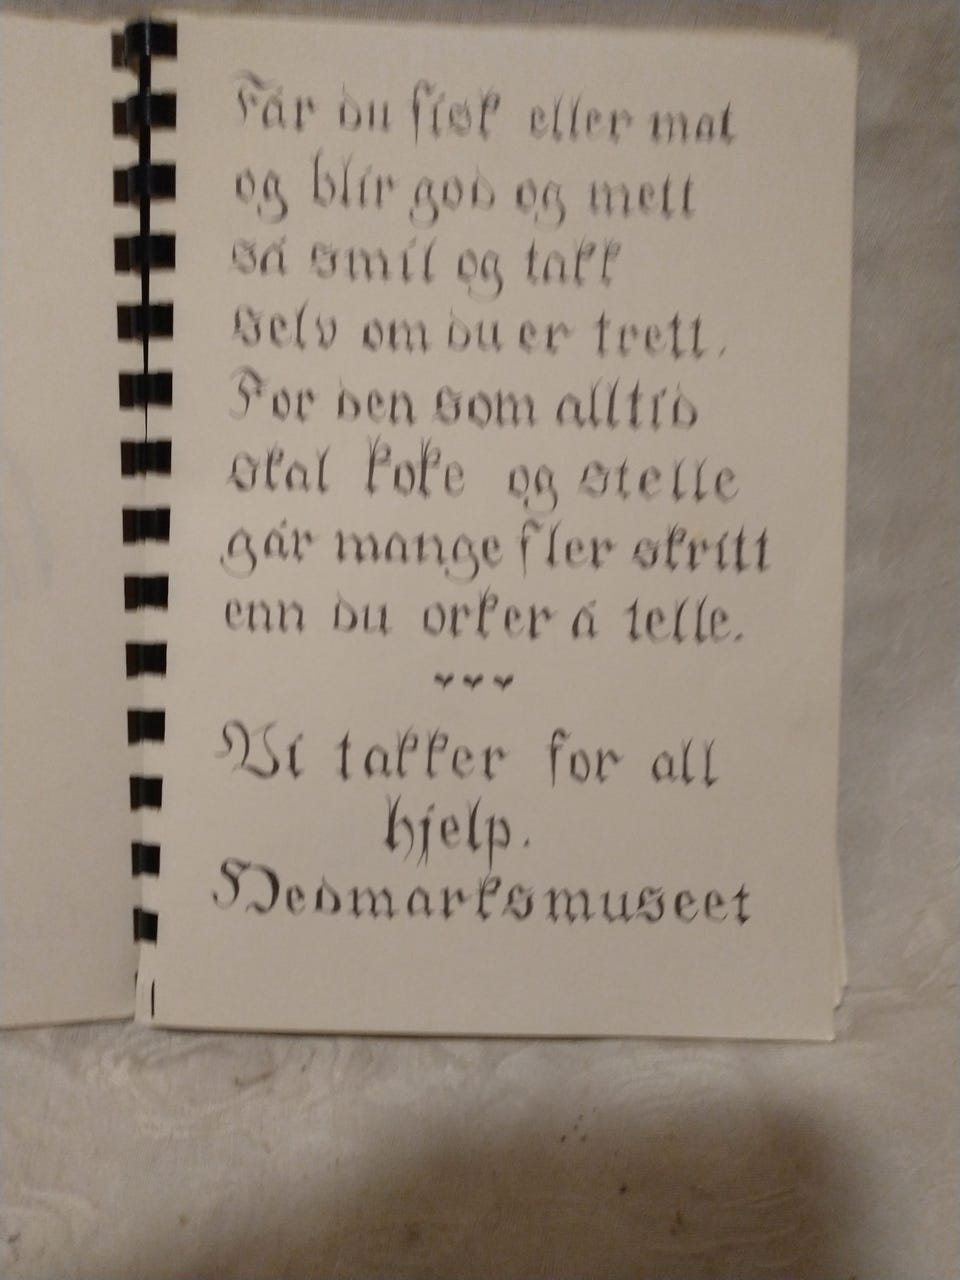 Får du fisk eller mat
og blir god og mett
så smil og takk
selv om du er trett.
For den som alltid
skal koke og stelle
går mange fler skritt
enn du orker å telle.
Vi takker for all
hjelp.
Hedmarksmuseet